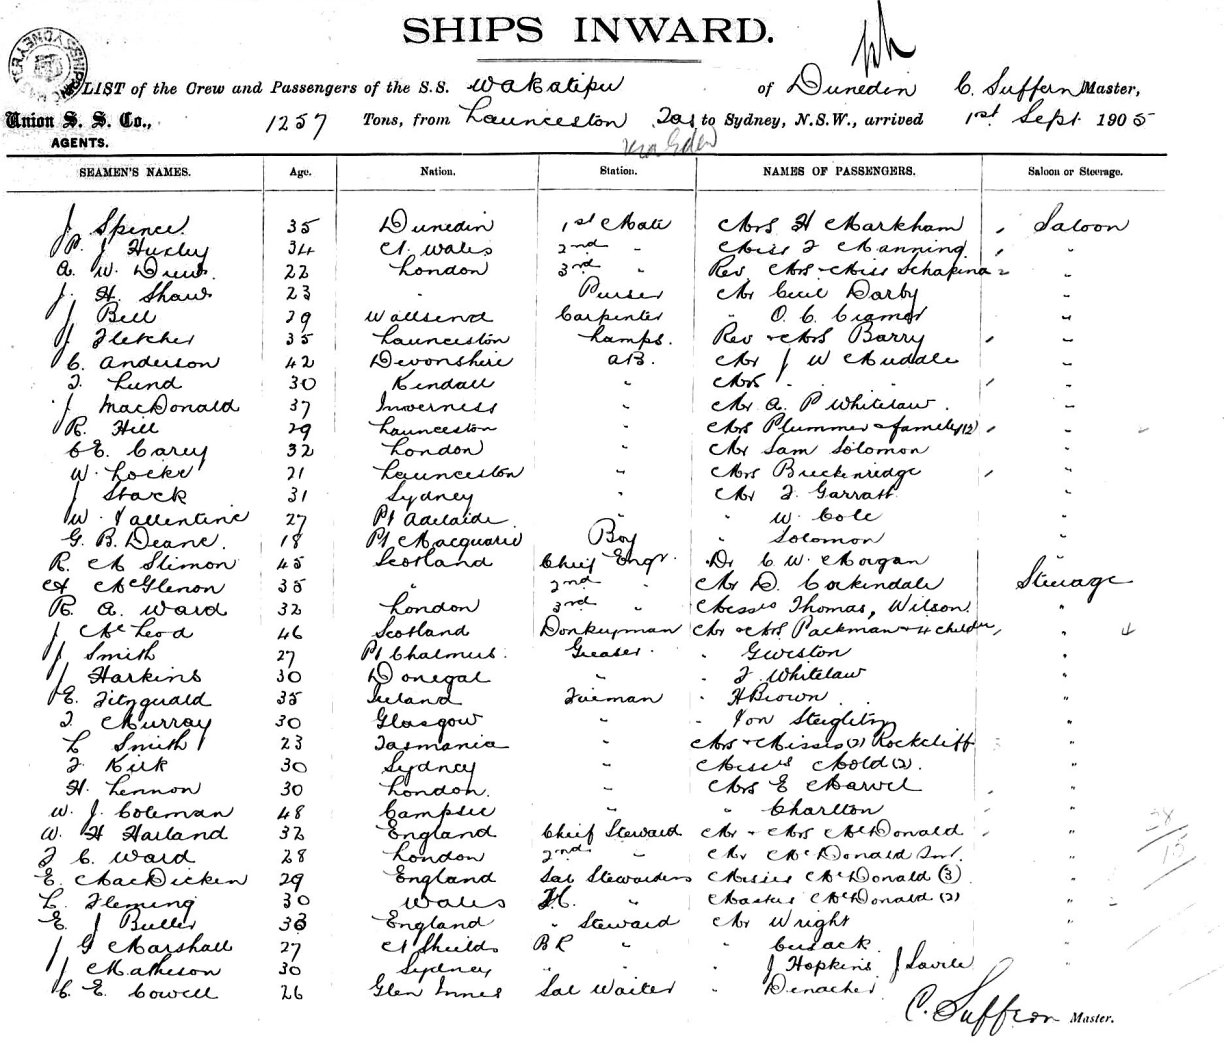 SHIPS INWARD.
LIST of the Crew and Passengers of the S.S. Wakatipu of Dunedin C. Suffern Master,
Union S. S. Co., 1257 Tons, from Launceston Tas to Sydney, N.S.W., arrived 1st Sept 1905
AGENTS. via Eden
SEAMEN'S NAMES. Age. Nation. Station. NAMES OF PASSENGERS. Saloon or Steerage.
J Spence 35 Dunedin 1st Mate Mrs H Markham , Saloon
P. J Huxley 34 N. Wales 2nd " Miss F Manning , "
A. W. Drew 22 London 3rd " Rev. Mrs + Miss Schapina 2 "
J. H. Shaw 23 " Purser Mr Cecil Darby "
J Bell 29 Wallsend Carpenter " O. C. Cramer "
J Fletcher 35 Launceston Lamps. Rev + Mrs Barry , "
C. Anderson 42 Devonshire AB. Mr J W Muddle "
F. Lund 30 Kendall " Mrs " " " , "
J MacDonald 37 Inverness " Mr A. P Whitelaw "
R. Hill 29 Launceston " Mrs Plummer + family (2) , "
C E. Carey 32 London " Mr Sam Solomon "
W. Locke 21 Launceston " Mrs Breckenridge , "
J Stack 31 Sydney " Mr F Garratt "
W. Vallentine 27 Pt Adelaide " " W. Cole "
G. B. Deane. 18 Pt Macquarie Boy " Solomon "
R. M Slimon 45 Scotland Chief Engr. Dr C W. Morgan "
A McGlenon 35 " 2nd " Mr D. Cockindale Steerage
R. A. Ward 32 London 3rd " Messrs Thomas, Wilson "
J McLeod 46 Scotland Donkeyman Mr + Mrs Packman + 4 childer , " 4
J Smith 27 Pt Chalmers. Greaser. " Gwiston "
J Harkins 30 Donegal " " F Whitelaw "
E. Fitzguald 35 Ireland Fireman " H Brown "
F. Murray 30 Glasgow " " Von Steiglitz "
L Smith 23 Tasmania " Mrs + Misses (2) Rockcliff "
F Kirk 30 Sydney " Misses Mold (2). "
H. Lennon 30 London. " Mrs E Marvel , "
W. J. Coleman 48 Campsie " " Charlton "
W. H Harland 32 England Chief Steward Mr + Mrs McDonald , "
F C. Ward 28 London 2nd " Mr McDonald Snr. "
E. MacDicken 29 England Sal Stewardess Misses McDonald (3) "
L. Fleming 30 Wales F.C. " Master McDonald (2) "
E. J Butler 33 England " Steward Mr Wright "
J G Marshall 27 N Shields BR " " Cusack "
J Matheson 30 Sydney " " " J Hopkins J Savile "
C. E. Cowell 26 Glen Innes Sal Waiter " Denacher
C. Suffern Master.